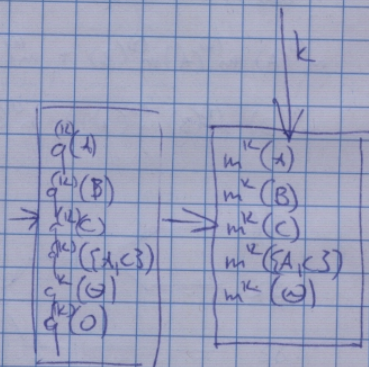 k
q^(k)(A)
q^(k)(B)
q^(k)(C)
q^(k)({A,C})
q^k(Θ)
q^(k)(O)
m^k(A)
m^k(B)
m^k(C)
m^k({A,C})
m^k(Θ)